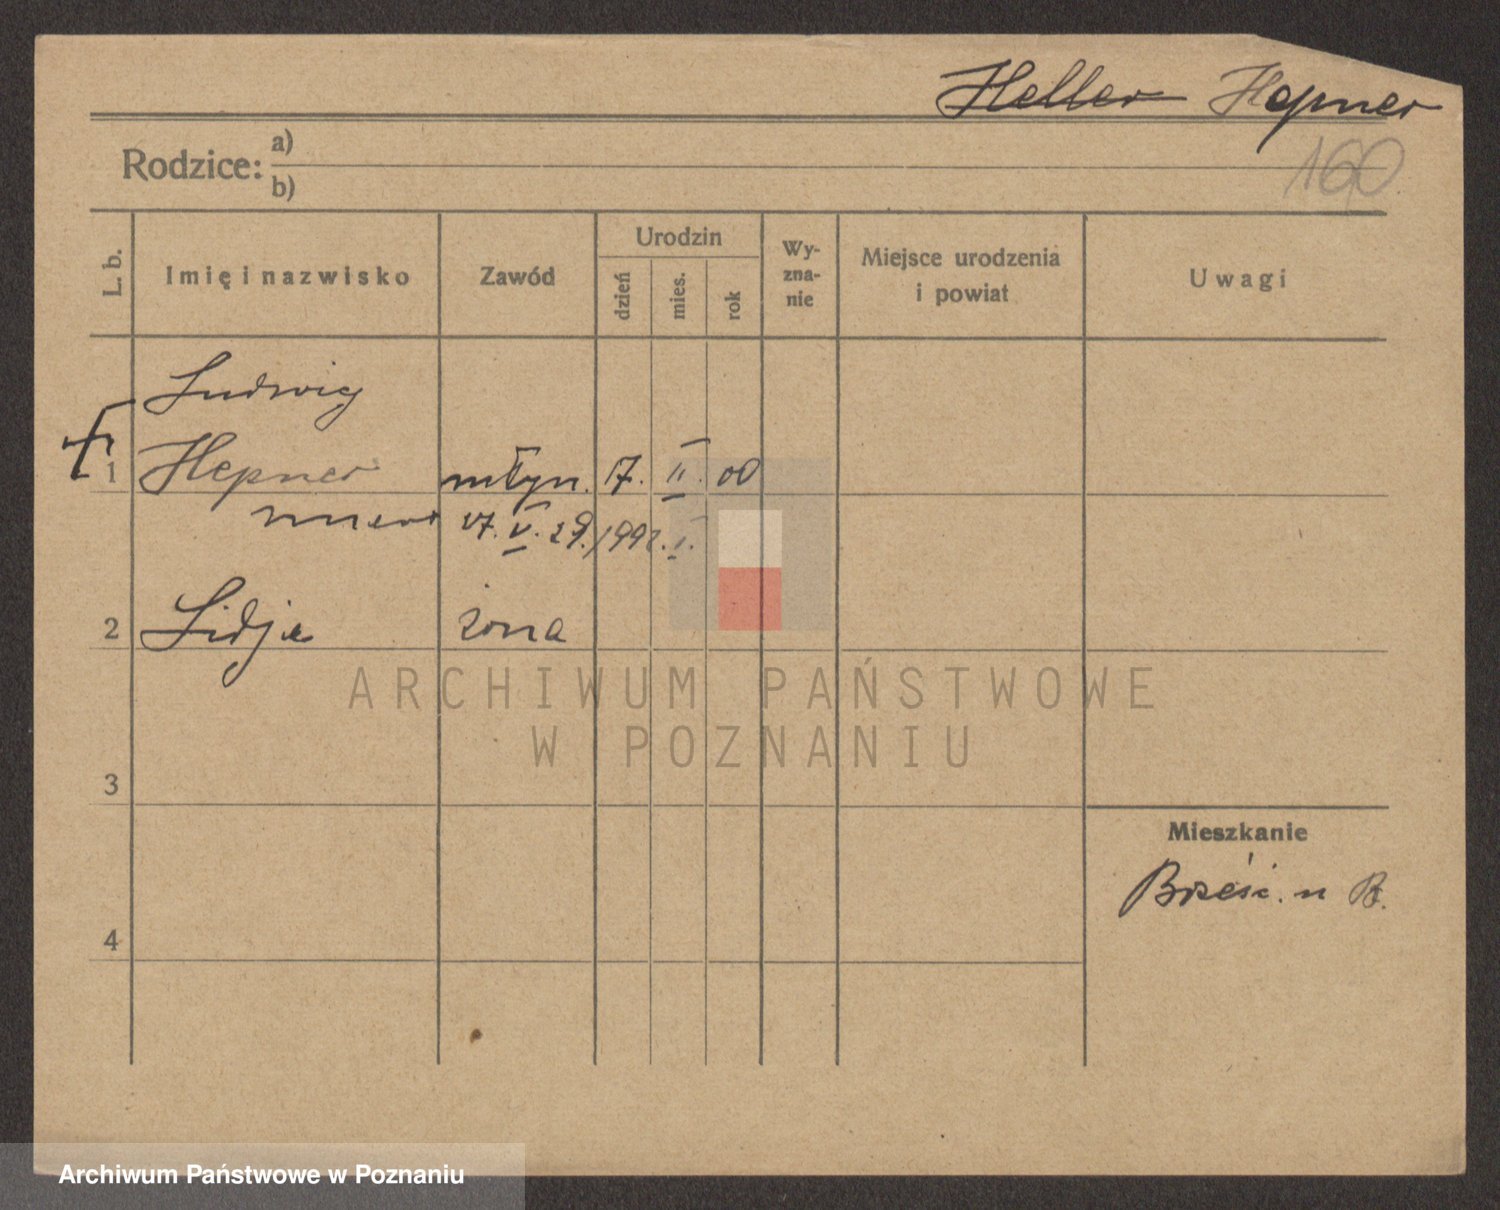 Heller Hepner
160
Rodzice: a)
b)
L. b.
Imię i nazwisko
Zawód
Urodzin
dzień
mies.
rok
Wy-
zna-
nie
Miejsce urodzenia
i powiat
Uwagi
Ludwig
1 Hepner młyn. 17. II. 00
27. V. 29. / 1992. I.
2 Lidja żona
3
Mieszkanie
Brześć. n B.
4
ARCHIWUM PAŃSTWOWE
W POZNANIU
Archiwum Państwowe w Poznaniu